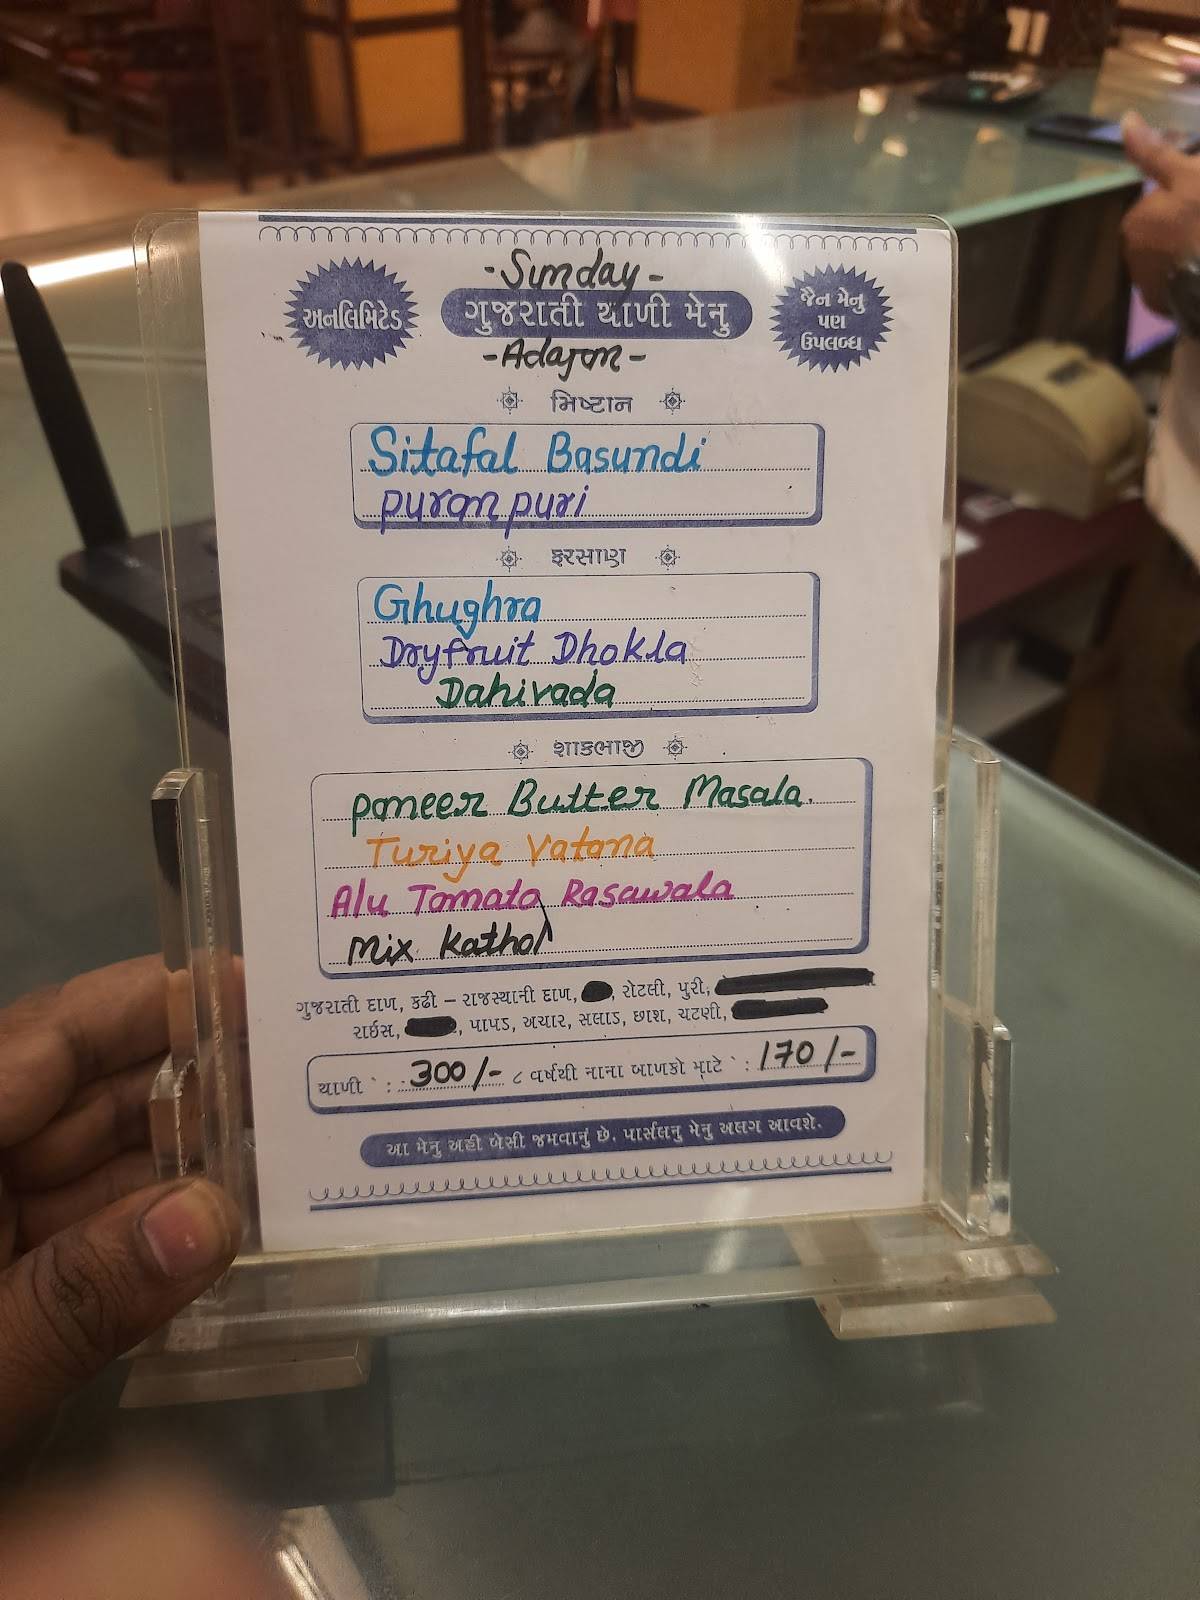 -Sunday-
અનલિમિટેડ
ગુજરાતી થાળી મેનુ
જૈન મેનુ
પણ
ઉપલબ્ધ
-Adajan-
મિષ્ટાન
Sitafal Basundi
puranpuri
ફરસાણ
Ghughra
Dryfruit Dhokla
Dahivada
શાકભાજી
Paneer Butter Masala.
Turiya Vatana
Alu Tomato Rasawala
Mix Kathol
ગુજરાતી દાળ, કઢી – રાજસ્થાની દાળ, , રોટલી, પુરી,
રાઈસ, , પાપડ, અચાર, સલાડ, છાશ, ચટણી,
થાળી : 300/- ૮ વર્ષથી નાના બાળકો માટે : 170/-
આ મેનુ અહીં બેસી જમવાનું છે. પાર્સલનુ મેનુ અલગ આવશે.